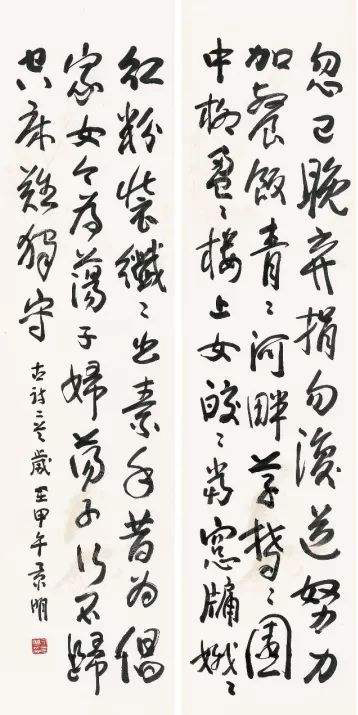 忽已晚弃捐勿復道努力
加餐飯青々河畔草鬱々園
中柳盈々樓上女皎々當窗牖娥々
紅粉裝纖々出素手昔为倡
家女今为蕩子婦蕩子行不歸
空床難獨守
古詩二首歲在甲午景明